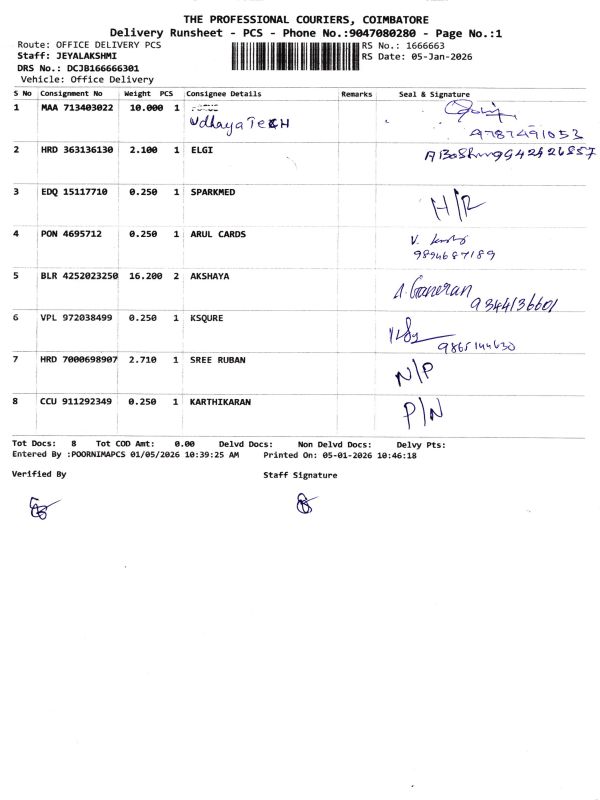 THE PROFESSIONAL COURIERS, COIMBATORE
Delivery Runsheet - PCS - Phone No.:9047080280 - Page No.:1
Route: OFFICE DELIVERY PCS
RS No.: 1666663
Staff: JEYALAKSHMI
RS Date: 05-Jan-2026
DRS No.: DCJB166666301
Vehicle: Office Delivery
S No Consignment No Weight PCS Consignee Details Remarks Seal & Signature
1 MAA 713403022 10.000 1
UdhayaTech
9787491053
2 HRD 363136130 2.100 1 ELGI
3 EDQ 15117710 0.250 1 SPARKMED H/R
4 PON 4695712 0.250 1 ARUL CARDS V.
9894687189
5 BLR 4252023250 16.200 2 AKSHAYA
9344136601
6 VPL 972038499 0.250 1 KSQURE
9865144630
7 HRD 7000698907 2.710 1 SREE RUBAN N/P
8 CCU 911292349 0.250 1 KARTHIKARAN P/N
Tot Docs: 8 Tot COD Amt: 0.00 Delvd Docs: Non Delvd Docs: Delvy Pts:
Entered By :POORNIMAPCS 01/05/2026 10:39:25 AM Printed On: 05-01-2026 10:46:18
Verified By Staff Signature